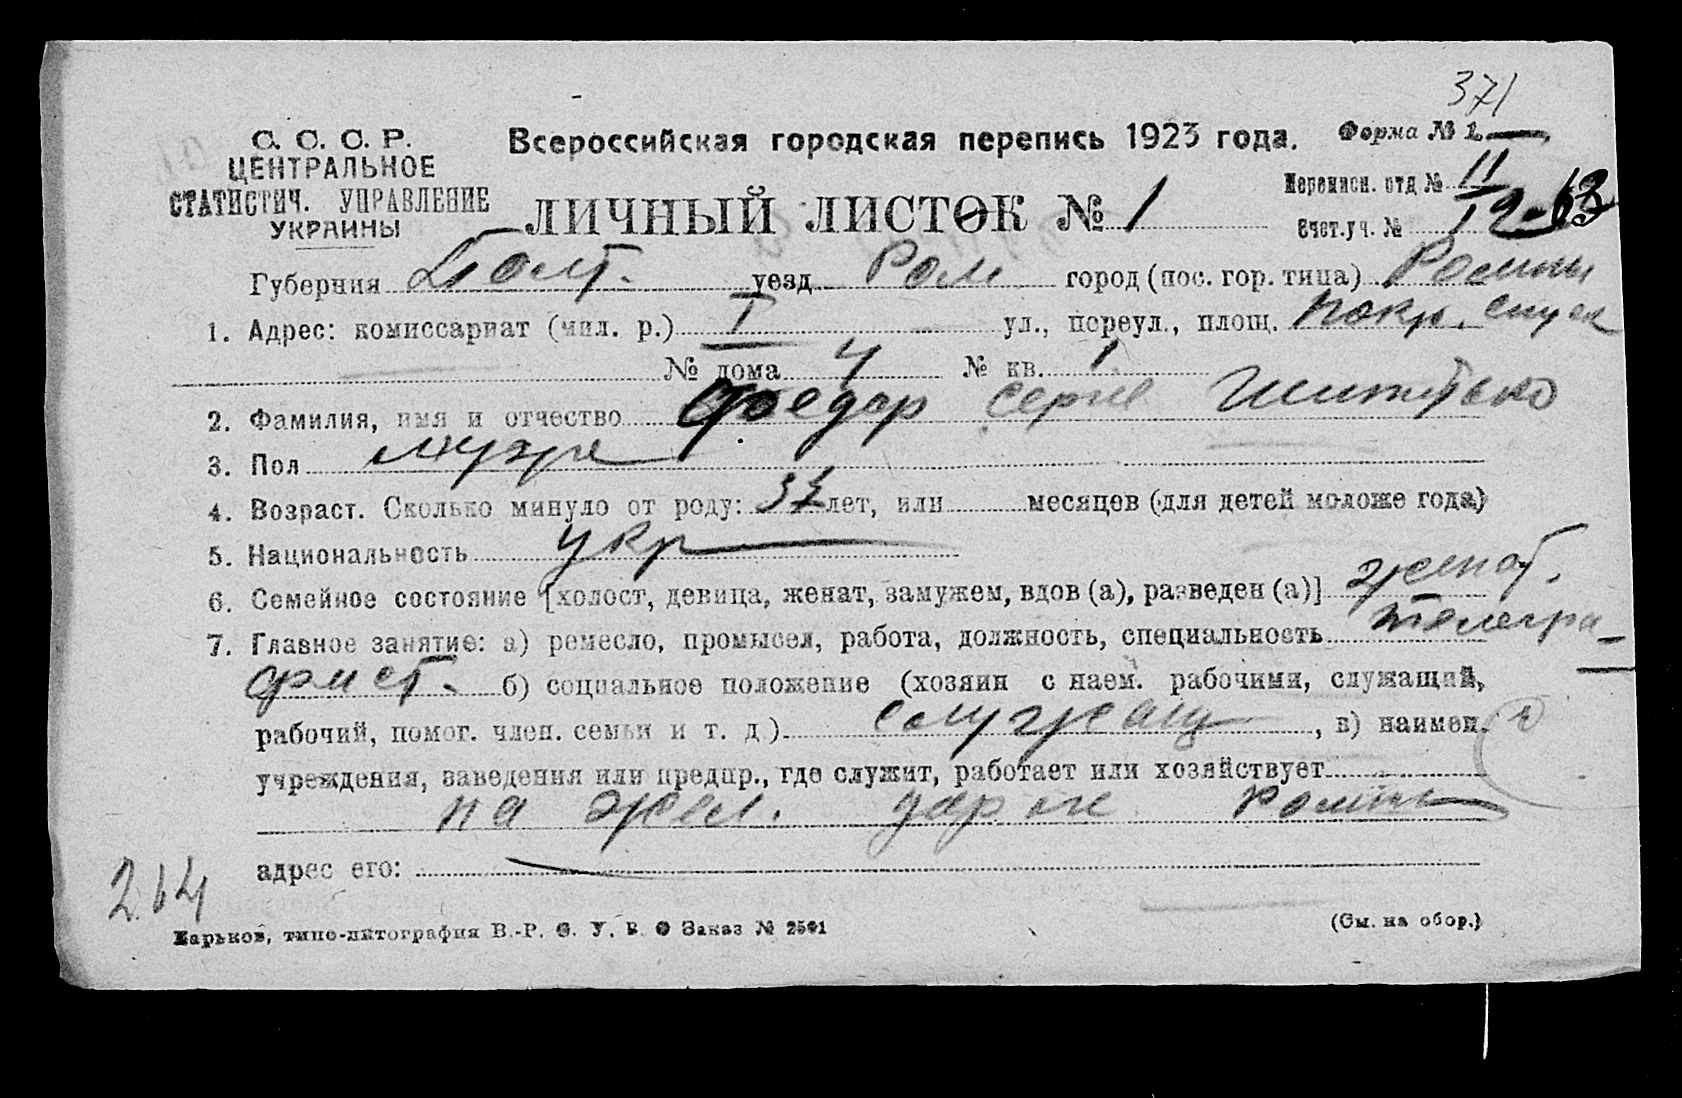 371
С. С. С. Р.
ЦЕНТРАЛЬНОЕ
СТАТИСТИЧ. УПРАВЛЕНИЕ
УКРАИНЫ
Всероссийская городская перепись 1923 года.
Форма № 1.
ЛИЧНЫЙ ЛИСТОК № 1
Переписн. отд № 11
Счет.уч. № 12
Губерния Полт. уезд Ром город (пос. гор. типа) Ромны
1. Адрес: комиссариат (мил. р.) I ул., переул., площ. Покр. спуск
№ дома 4 № кв. 1
2. Фамилия, имя и отчество Федор Серге
3. Пол мужс
4. Возраст. Сколько минуло от роду: лет, или месяцев (для детей моложе года)
5. Национальность укр
6. Семейное состояние [холост, девица, женат, замужем, вдов (а), разведен (а)] женат.
7. Главное занятие: а) ремесло, промысел, работа, должность, специальность телегра-
фист. б) социальное положение (хозяин с наем. рабочими, служащий,
рабочий, помог. член. семьи и т. д.) служащ, в) наимен.
учреждения, заведения или предпр., где служит, работает или хозяйствует
на жел. дороге Ромны
адрес его:
264
Харьков, типо-литография В.-Р. Ф. У. В. О Заказ № 2501
(См. на обор.)